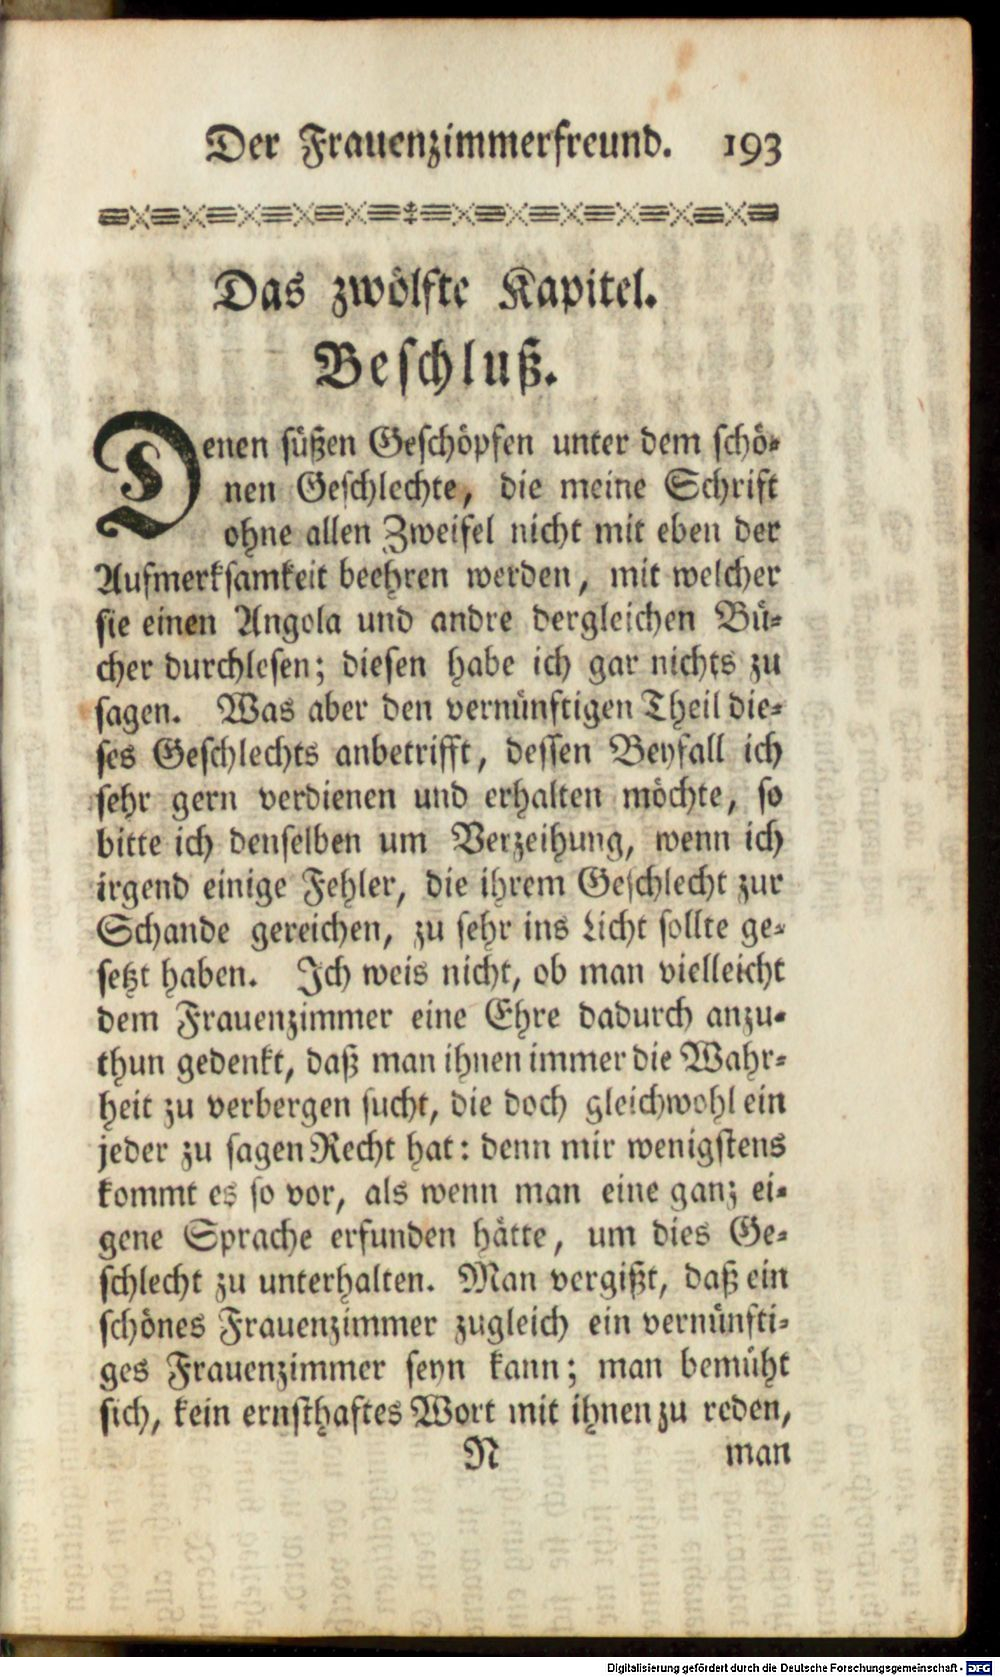 Der Frauenzimmerfreund. 193
Das zwölfte Kapitel.
Beschluß.
Denen süßen Geschöpfen unter dem schö-
nen Geschlechte, die meine Schrift
ohne allen Zweifel nicht mit eben der
Aufmerksamkeit beehren werden, mit welcher
sie einen Angola und andre dergleichen Bü-
cher durchlesen; diesen habe ich gar nichts zu
sagen. Was aber den vernünftigen Theil die-
ses Geschlechts anbetrifft, dessen Beyfall ich
sehr gern verdienen und erhalten möchte, so
bitte ich denselben um Verzeihung, wenn ich
irgend einige Fehler, die ihrem Geschlecht zur
Schande gereichen, zu sehr ins Licht sollte ge-
setzt haben. Ich weis nicht, ob man vielleicht
dem Frauenzimmer eine Ehre dadurch anzu-
thun gedenkt, daß man ihnen immer die Wahr-
heit zu verbergen sucht, die doch gleichwohl ein
jeder zu sagen Recht hat: denn mir wenigstens
kommt es so vor, als wenn man eine ganz ei-
gene Sprache erfunden hätte, um dies Ge-
schlecht zu unterhalten. Man vergißt, daß ein
schönes Frauenzimmer zugleich ein vernünfti-
ges Frauenzimmer seyn kann; man bemüht
sich, kein ernsthaftes Wort mit ihnen zu reden,
N man
Digitalisierung gefördert durch die Deutsche Forschungsgemeinschaft - DFG